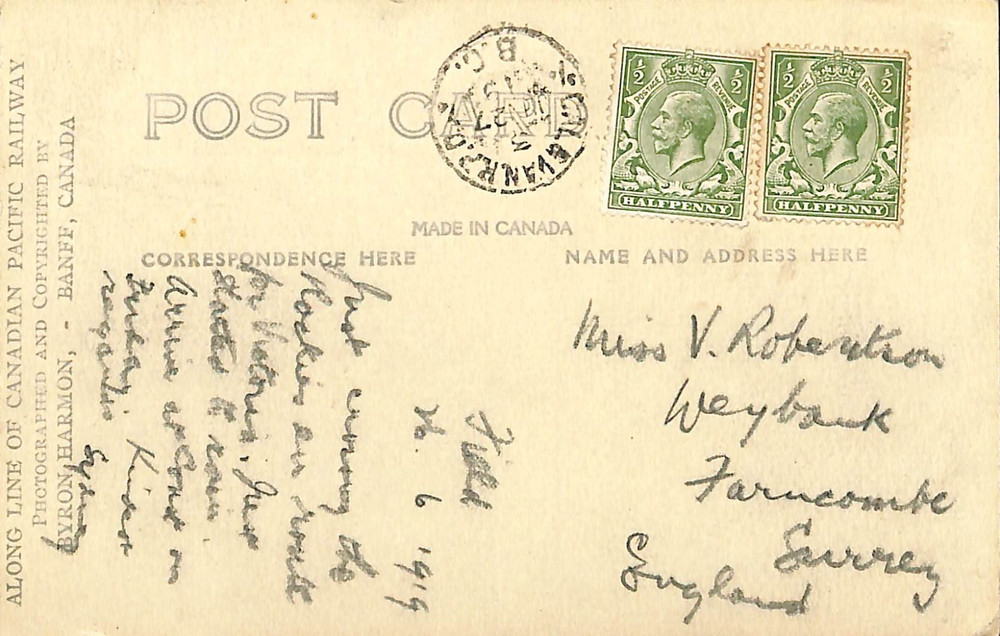 ALONG LINE OF CANADIAN PACIFIC RAILWAY
PHOTOGRAPHED AND COPYRIGHTED BY
BYRON HARMON, - BANFF, CANADA
POST CARD
MADE IN CANADA
CORRESPONDENCE HERE
NAME AND ADDRESS HERE
B.C.
27
½ ½
POSTAGE REVENUE
HALFPENNY
½ ½
POSTAGE REVENUE
HALFPENNY
Field
6 1919
Just crossing the
Rockies en route
for Victoria. Just
started to rain.
Arrive at Coast on
Friday. Kind
regards Sydney
Miss V. Robertson
Weybank
Farncombe
Surrey
England